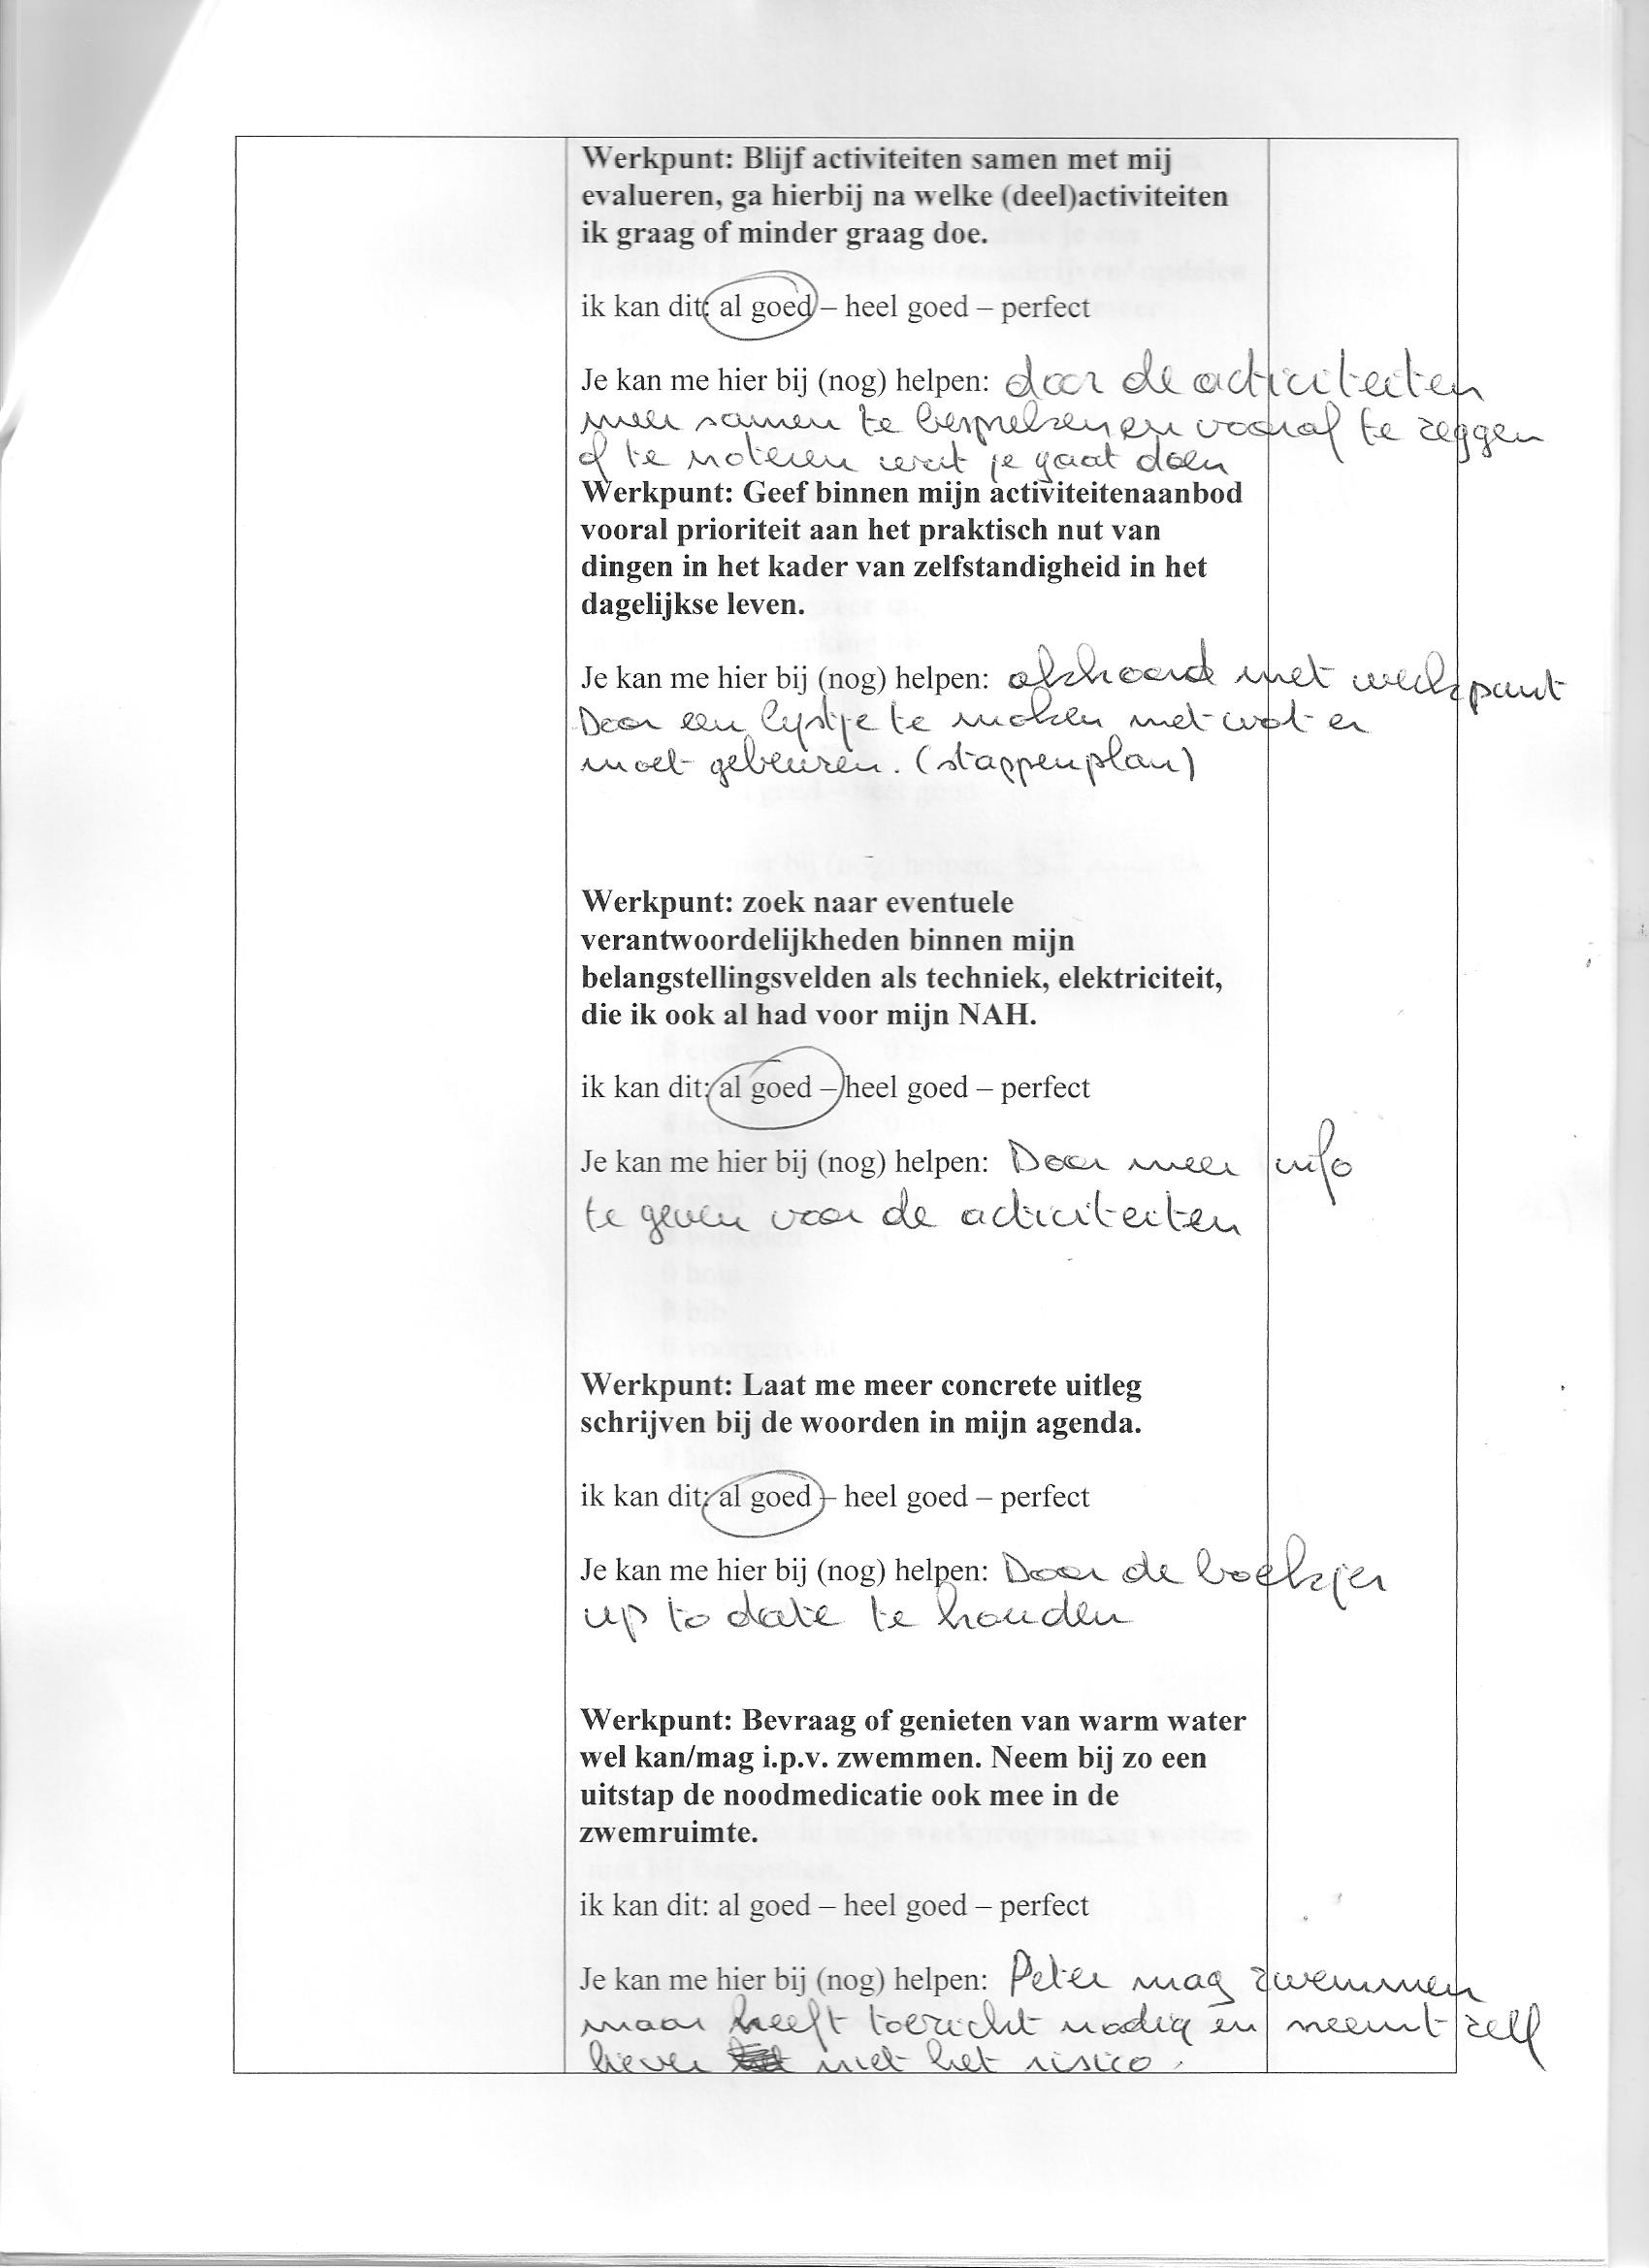 Werkpunt: Blijf activiteiten samen met mij
evalueren, ga hierbij na welke (deel)activiteiten
ik graag of minder graag doe.
ik kan dit: al goed – heel goed – perfect
Je kan me hier bij (nog) helpen: door de activiteiten
meer samen te bespreken en vooraf te zeggen
of te noteren wat je gaat doen
Werkpunt: Geef binnen mijn activiteitenaanbod
vooral prioriteit aan het praktisch nut van
dingen in het kader van zelfstandigheid in het
dagelijkse leven.
Je kan me hier bij (nog) helpen: akkoord met werkpunt
Door een lijstje te maken met wat er
moet gebeuren. (stappenplan)
Werkpunt: zoek naar eventuele
verantwoordelijkheden binnen mijn
belangstellingsvelden als techniek, elektriciteit,
die ik ook al had voor mijn NAH.
ik kan dit: al goed – heel goed – perfect
Je kan me hier bij (nog) helpen: Door meer info
te geven voor de activiteiten
Werkpunt: Laat me meer concrete uitleg
schrijven bij de woorden in mijn agenda.
ik kan dit: al goed – heel goed – perfect
Je kan me hier bij (nog) helpen: Door de boekjes
up to date te houden
Werkpunt: Bevraag of genieten van warm water
wel kan/mag i.p.v. zwemmen. Neem bij zo een
uitstap de noodmedicatie ook mee in de
zwemruimte.
ik kan dit: al goed – heel goed – perfect
Je kan me hier bij (nog) helpen: Peter mag zwemmen
maar heeft toezicht nodig en neemt zelf
liever niet het risico.